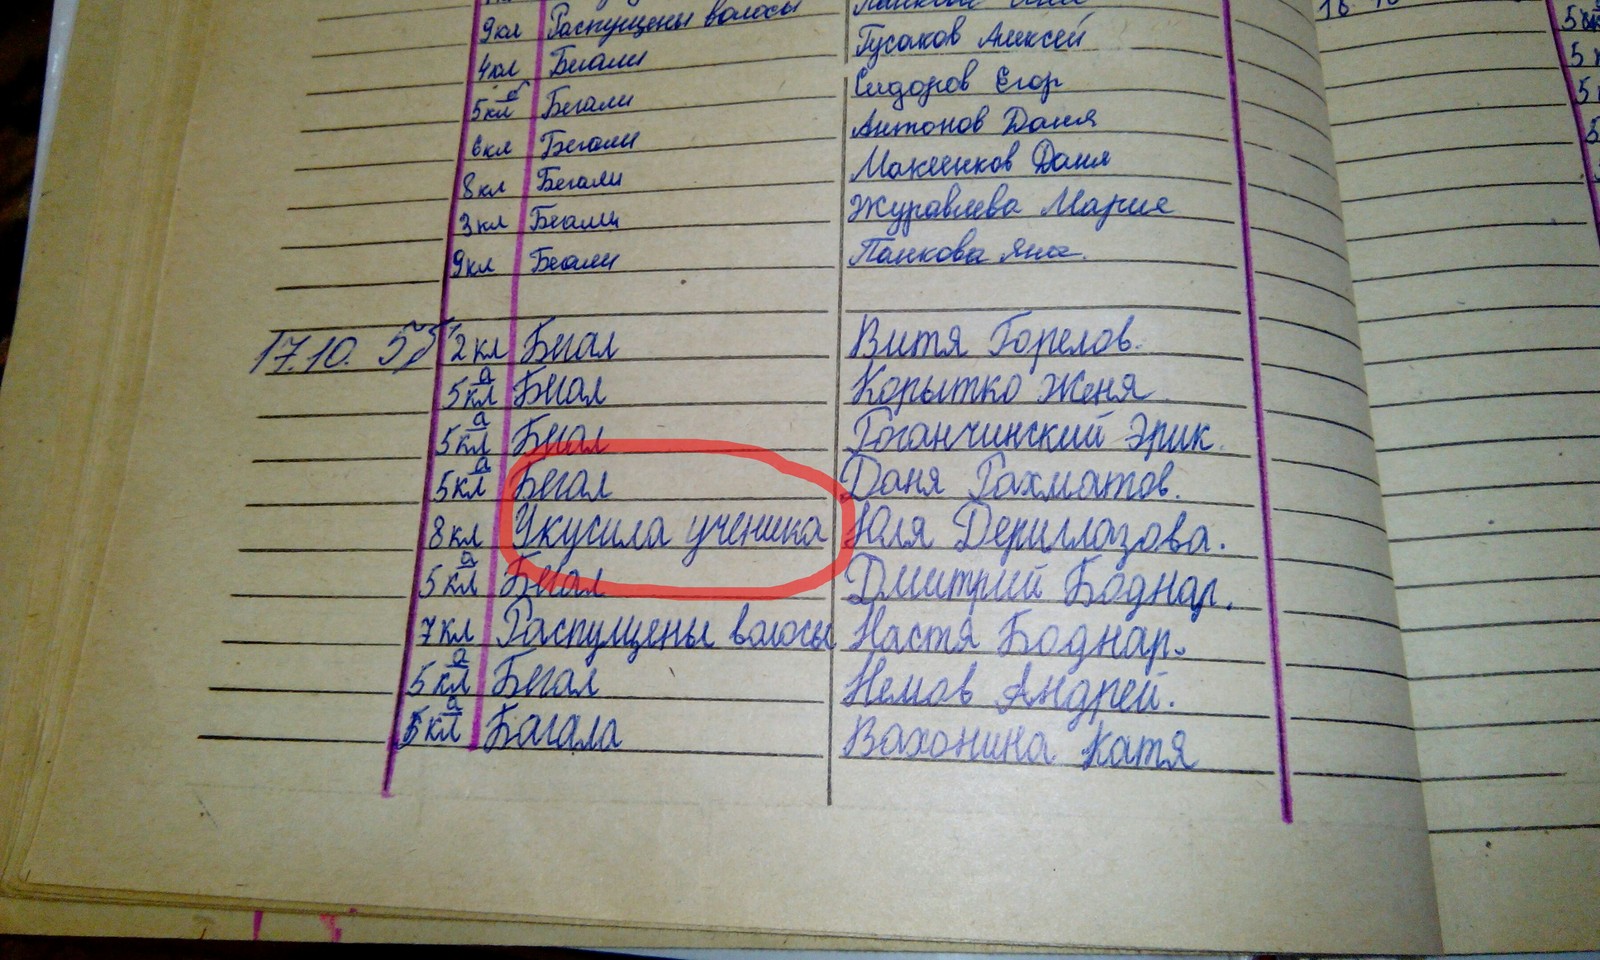 9кл Распущены волосы
4кл Бегали Гусаков Алексей
5кл Бегали Сидоров Егор
6кл Бегали Антонов Даня
8кл Бегали Макеенков Даня
3кл Бегали Журавлева Мария
9кл Бегали Панкова Яна.
17.10. 2кл Бегал Витя Горелов.
5кл а Бегал Корытко Женя
5кл а Бегал Роганчинский Эрик.
5кл а Бегал Даня Рахматов.
8кл Укусила ученика Юля Дериглазова.
5кл а Бегал Дмитрий Боднар.
7кл Распущены волосы Настя Боднар.
5кл а Бегал Немов Андрей.
5кл а Багала Вахонина Катя